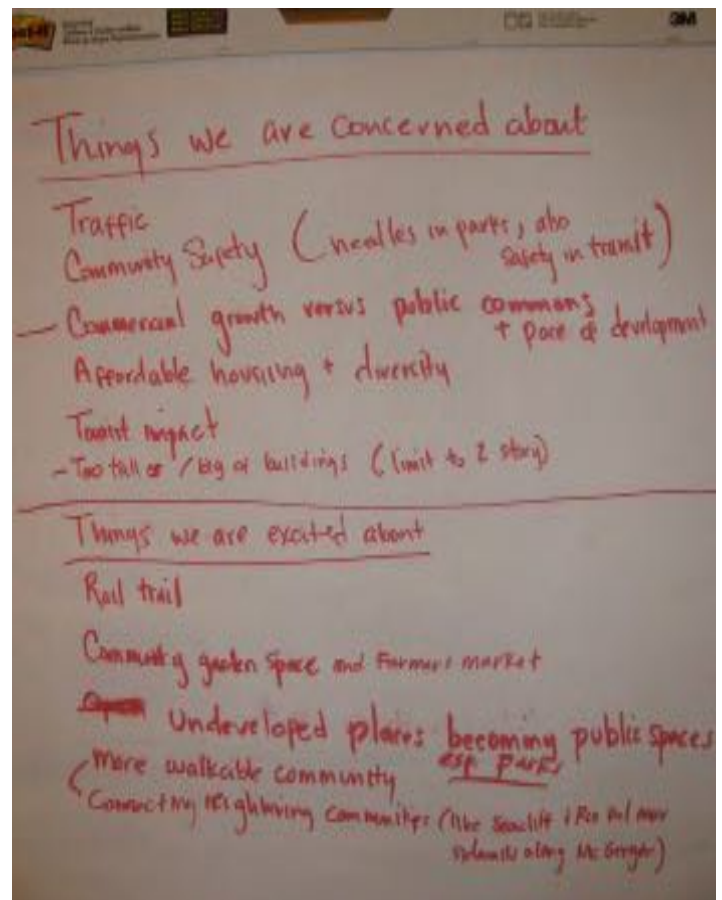 3M
Things we are concerned about
Traffic
Community Safety (needles in parks, also
safety in transit)
— Commercial growth versus public commons
+ pace of development
Affordable housing + diversity
Tourist impact
- Too tall or / big of buildings (limit to 2 story)
Things we are excited about
Rail trail
Community garden space and Farmers market
Undeveloped places becoming public spaces
esp parks
More walkable community
Connecting neighboring communities (like Seacliff + Rio Del Mar
sidewalks along McGregor)